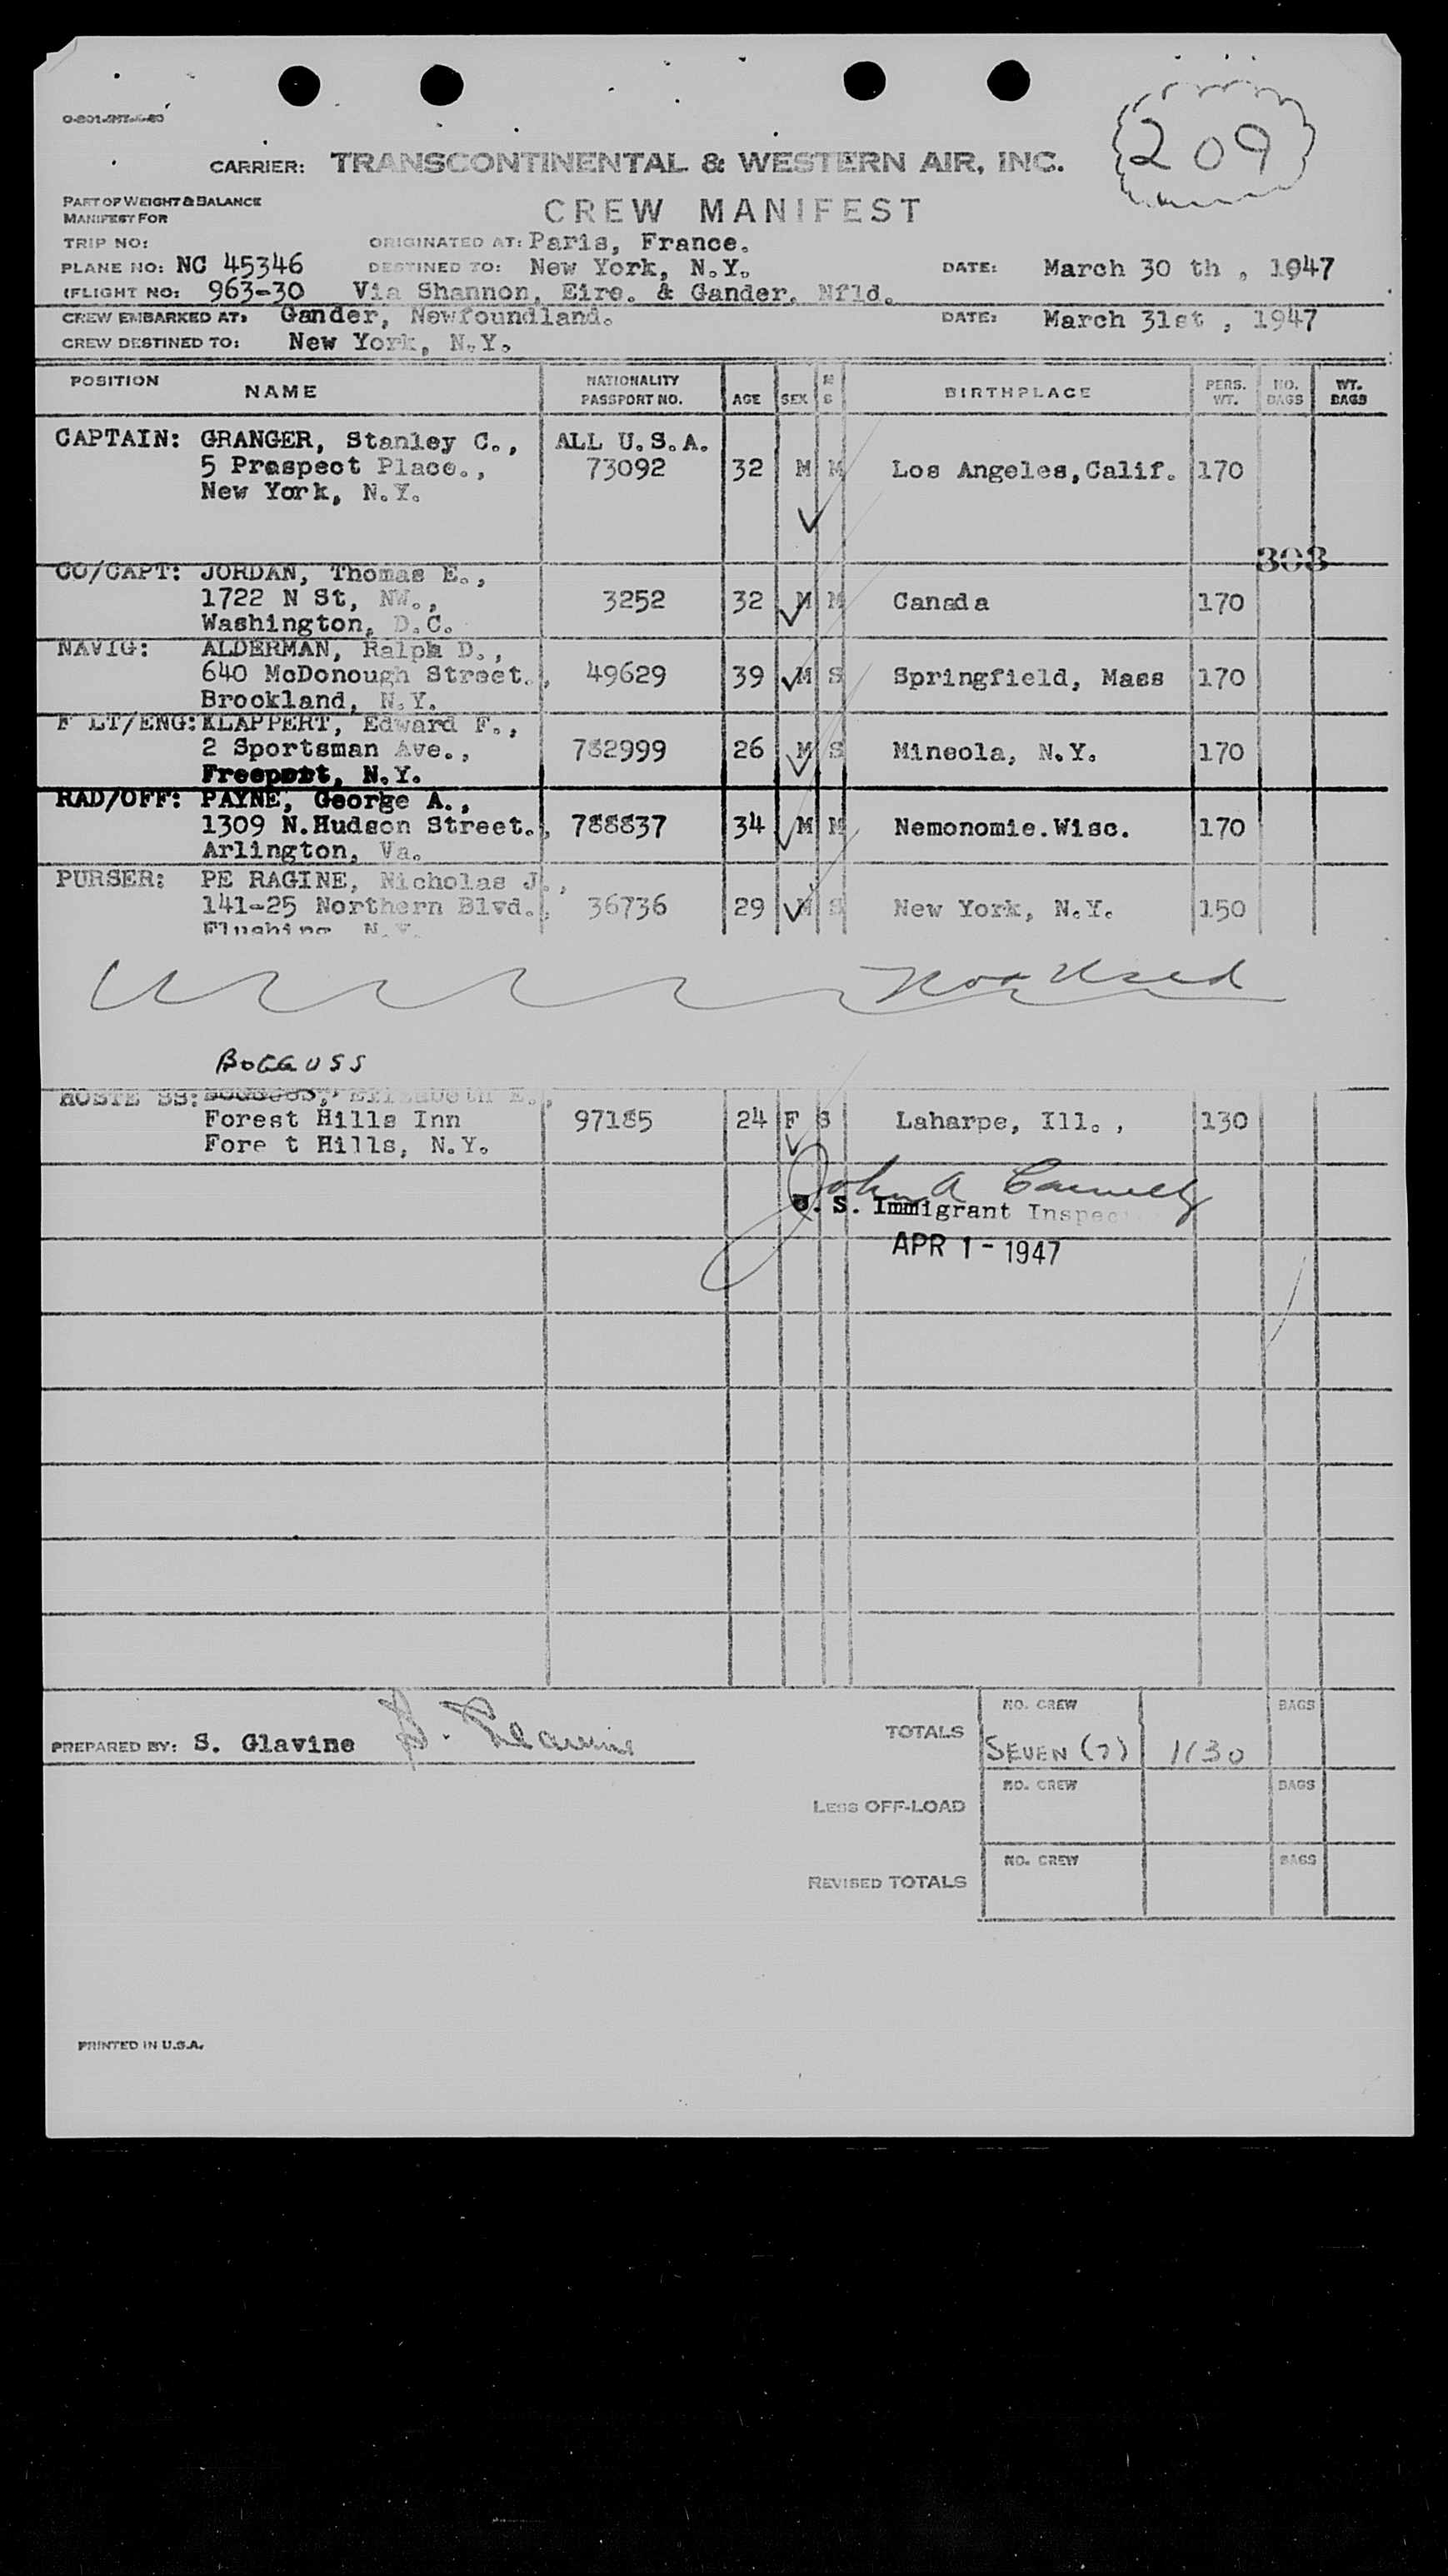 209
CARRIER: TRANSCONTINENTAL & WESTERN AIR, INC.
PART OF WEIGHT & BALANCE
MANIFEST FOR
CREW MANIFEST
TRIP NO: ORIGINATED AT: Paris, France.
PLANE NO: NC 45346 DESTINED TO: New York, N.Y. DATE: March 30 th , 1947
(FLIGHT NO: 963-30 Via Shannon, Eire. & Gander, Nfld.
CREW EMBARKED AT: Gander, Newfoundland. DATE: March 31st , 1947
CREW DESTINED TO: New York, N.Y.
POSITION NAME NATIONALITY PASSPORT NO. AGE SEX M S BIRTHPLACE PERS. WT. NO. BAGS WT. BAGS
CAPTAIN: GRANGER, Stanley C., ALL U.S.A.
5 Prospect Place., 73092 32 M M Los Angeles,Calif. 170
New York, N.Y.
303
CO/CAPT: JORDAN, Thomas E.,
1722 N St, NW., 3252 32 M M Canada 170
Washington, D.C.
NAVIG: ALDERMAN, Ralph D.,
640 McDonough Street., 49629 39 M S Springfield, Mass 170
Brookland, N.Y.
F LT/ENG: KLAPPERT, Edward F.,
2 Sportsman Ave., 26 M S Mineola, N.Y. 170
Freeport, N.Y.
RAD/OFF: PAYNE, George A.,
1309 N.Hudson Street., 788837 34 M M Nemonomie.Wisc. 170
Arlington, Va.
PURSER: PE RAGINE, Nicholas J.,
141-25 Northern Blvd., 36736 29 M S New York, N.Y. 150
Flushing N.Y.
Not Used
BOGGUSS
HOSTE SS: Elizabeth E.,
Forest Hills Inn 97185 24 F S Laharpe, Ill. , 130
Fore t Hills, N.Y.
John A
U. S. Immigrant Inspec
APR 1 - 1947
PREPARED BY: S. Glavine S. Glavine
TOTALS NO. CREW SEVEN (7) 1130 BAGS
LESS OFF-LOAD NO. CREW BAGS
REVISED TOTALS NO. CREW BAGS
PRINTED IN U.S.A.